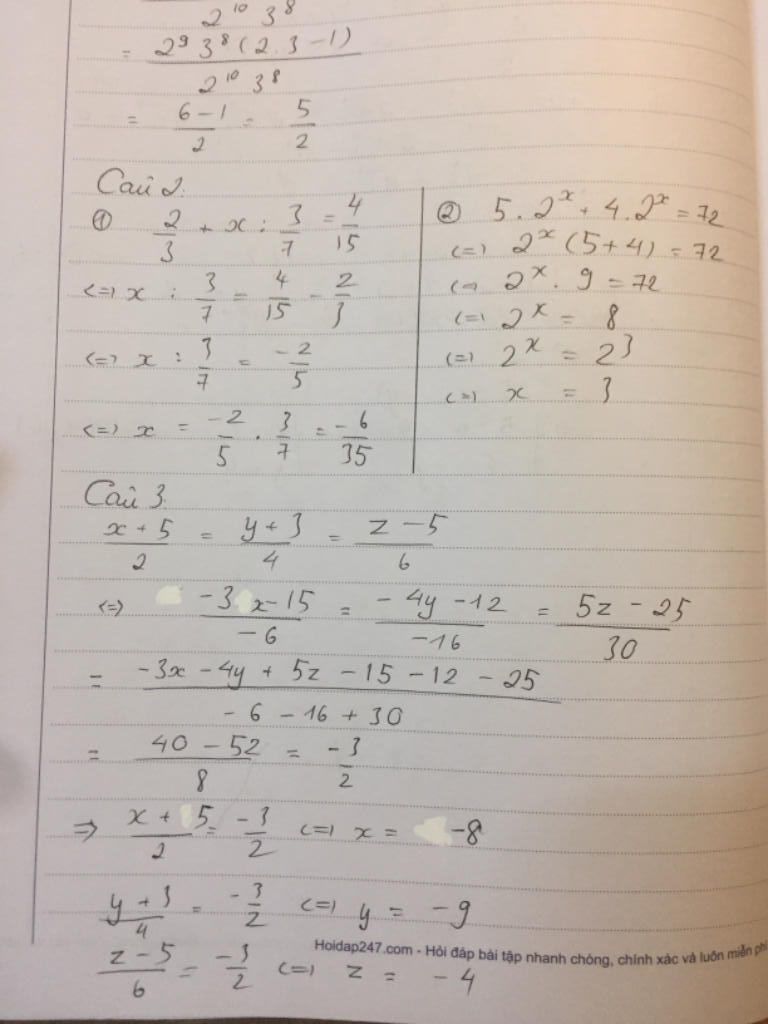 2^10 3^8
= 2^9 3^8 (2.3 - 1) / 2^10 3^8
= (6 - 1)/2 = 5/2
Câu 2:
① 2/3 + x : 3/7 = 4/15
<=> x : 3/7 = 4/15 - 2/3
<=> x : 3/7 = -2/5
<=> x = -2/5 . 3/7 = -6/35
② 5.2^x + 4.2^x = 72
<=> 2^x (5+4) = 72
<=> 2^x . 9 = 72
<=> 2^x = 8
<=> 2^x = 2^3
<=> x = 3
Câu 3.
(x + 5)/2 = (y + 3)/4 = (z - 5)/6
<=> (-3x - 15)/-6 = (-4y - 12)/-16 = (5z - 25)/30
= (-3x - 4y + 5z - 15 - 12 - 25)/(-6 - 16 + 30)
= (40 - 52)/8 = -3/2
=> (x + 5)/2 = -3/2 <=> x = -8
(y + 3)/4 = -3/2 <=> y = -9
(z - 5)/6 = -3/2 <=> z = -4
Hoidap247.com - Hỏi đáp bài tập nhanh chóng, chính xác và luôn miễn phí